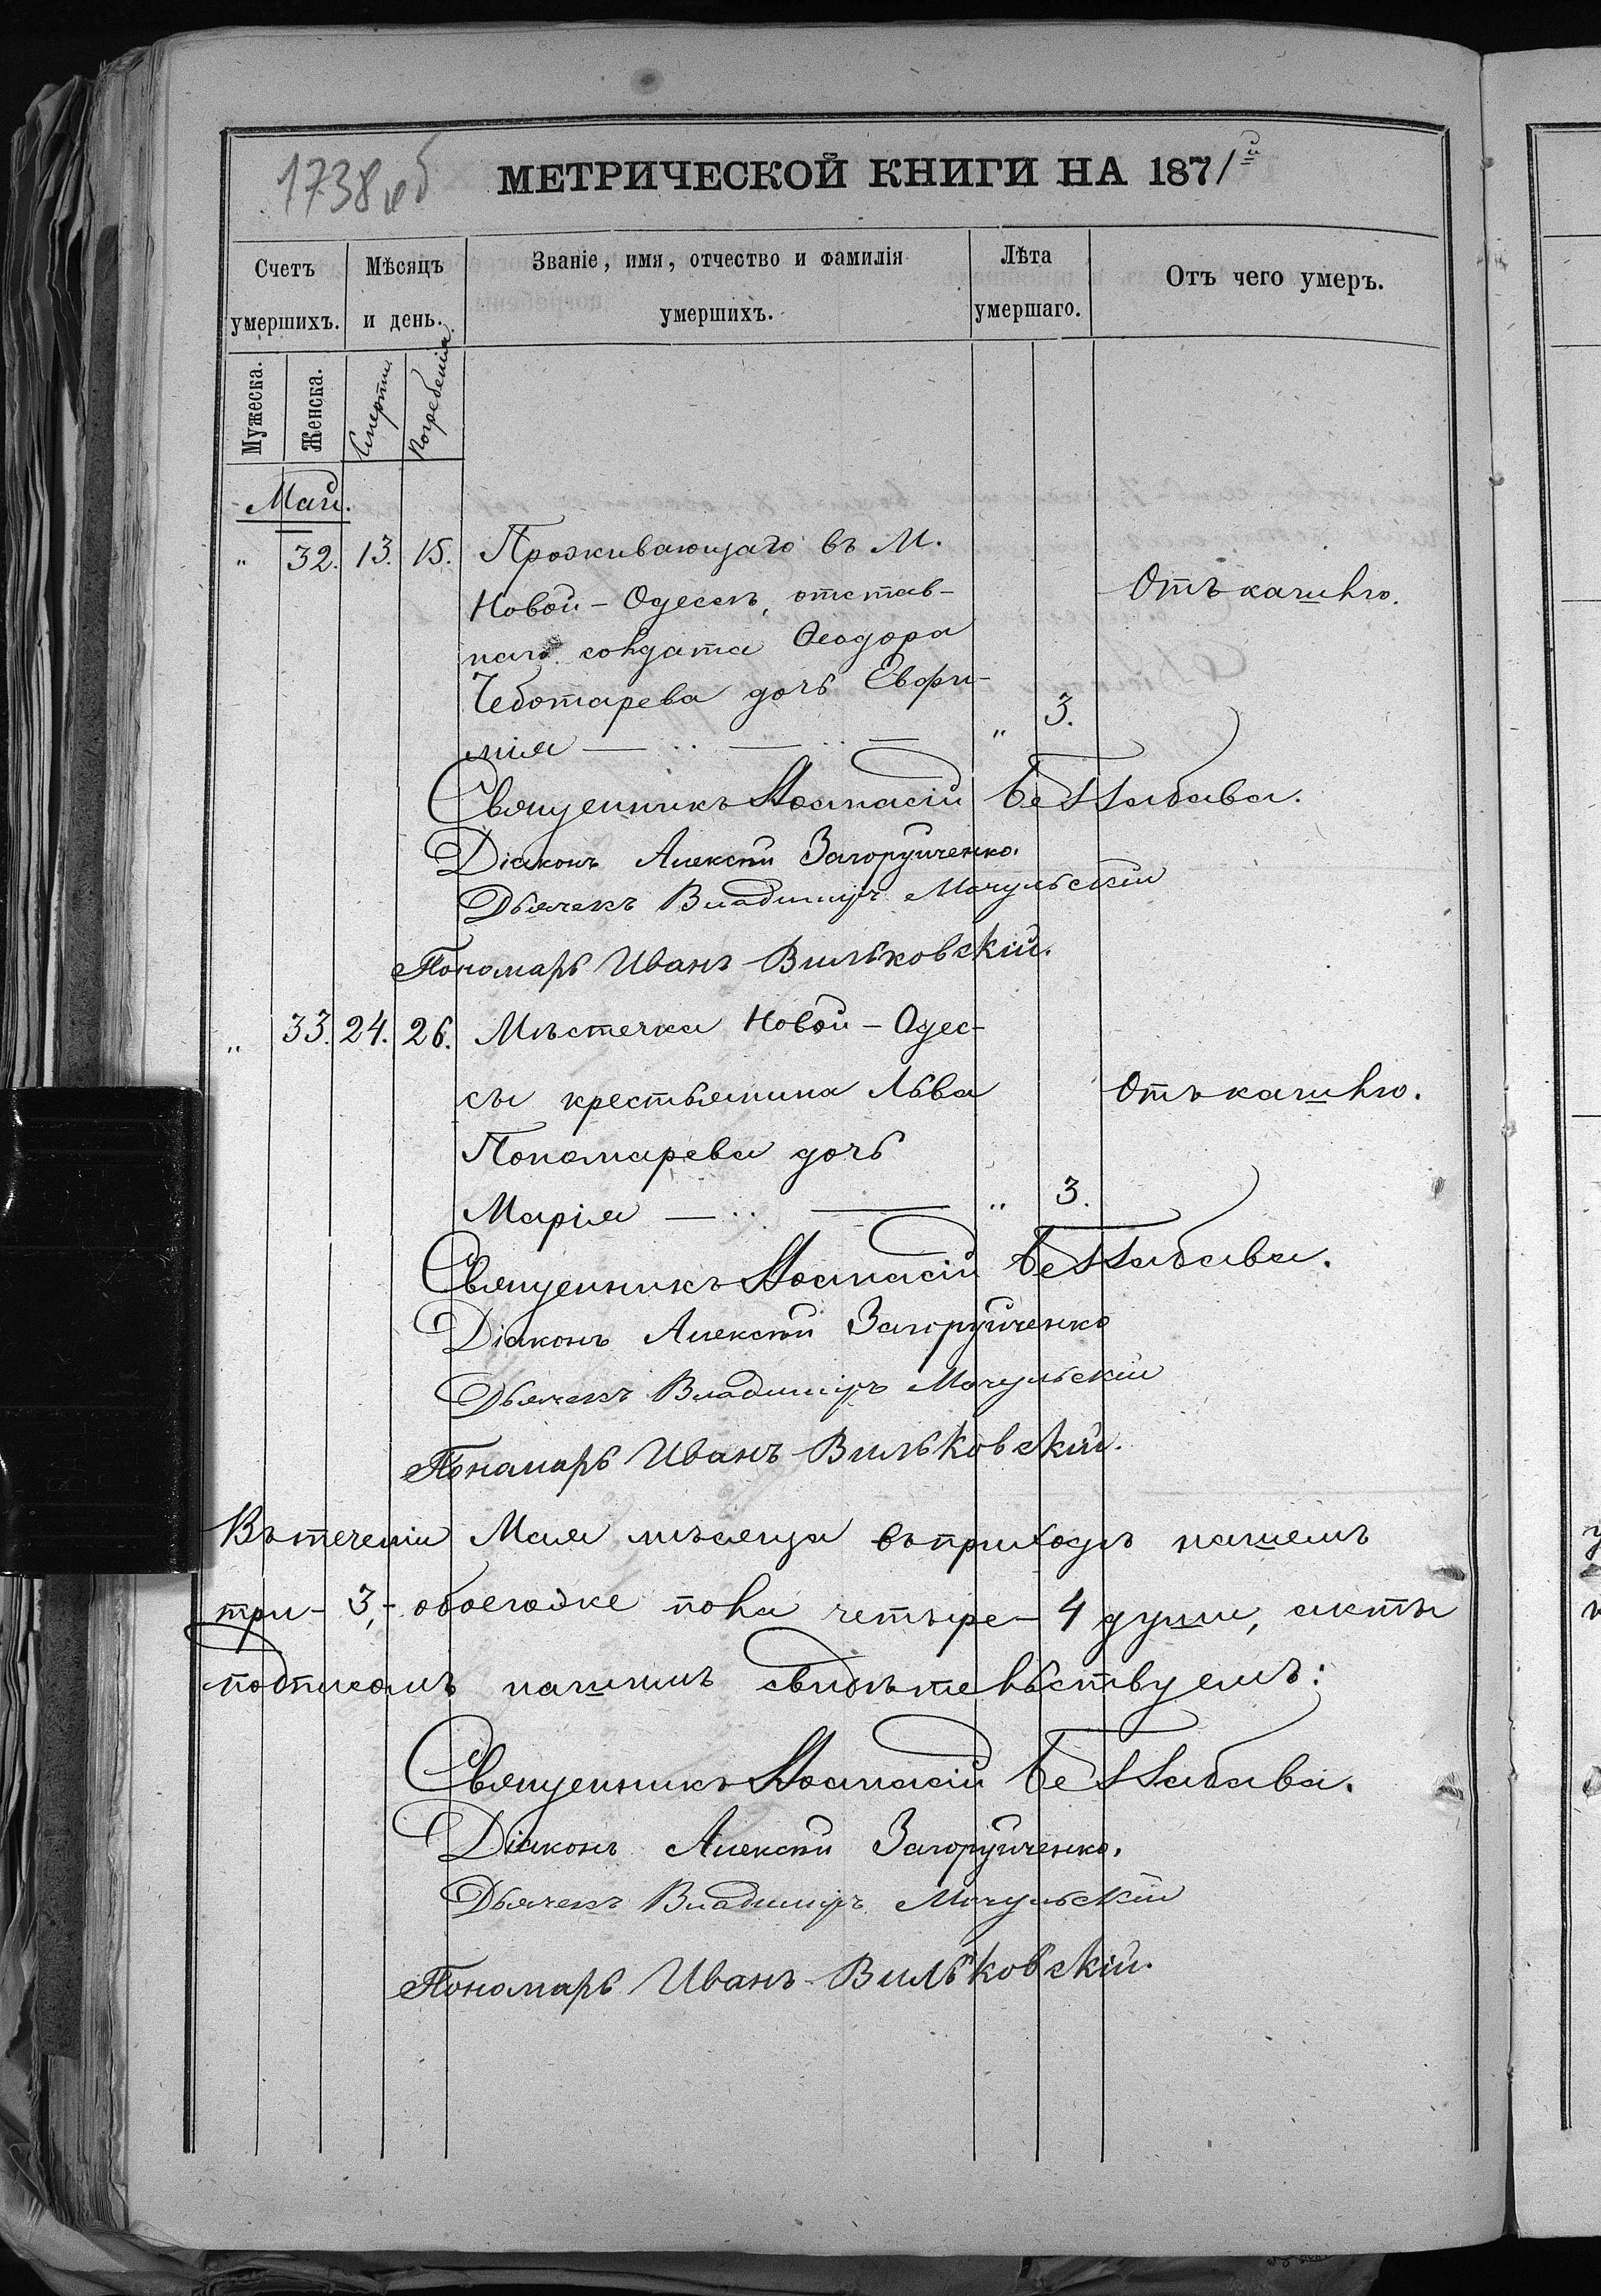 1738 об
МЕТРИЧЕСКОЙ КНИГИ НА 1871й
Счетъ умершихъ.
Мѣсяцъ и день.
Званіе, имя, отчество и фамилія умершихъ.
Лѣта умершаго.
Отъ чего умеръ.
Мужеска.
Женска.
Смерти
Погребенія
Май.
" 32. 13. 15. Проживающаго въ М.
Новой-Одессѣ, отстав-
наго солдата Ѳеодора
Чеботарева дочь Евфи-
мія " 3.
Отъ кашлю.
Священникъ Аѳанасій Беззабава.
Діаконъ Алексѣй Загоруйченко.
Дьячекъ Владимиръ Мочульскій
Пономарь Иванъ Вильковскій.
" 33. 24. 26. Мѣстечка Новой-Одес-
сы крестьянина Льва
Пономарева дочь
Марія " 3.
Отъ кашлю.
Священникъ Аѳанасій Беззабава.
Діаконъ Алексѣй Загоруйченко
Дьячекъ Владимиръ Мочульскій
Пономарь Иванъ Вильковскій.
Въ теченіи Мая мѣсяца въ приходѣ нашемъ
три - 3, - обоегоже пола четыре - 4 души, акты
подписомъ нашимъ свидѣтельствуемъ:
Священникъ Аѳанасій Беззабава.
Діаконъ Алексѣй Загоруйченко.
Дьячекъ Владимиръ Мочульскій
Пономарь Иванъ Вильковскій.